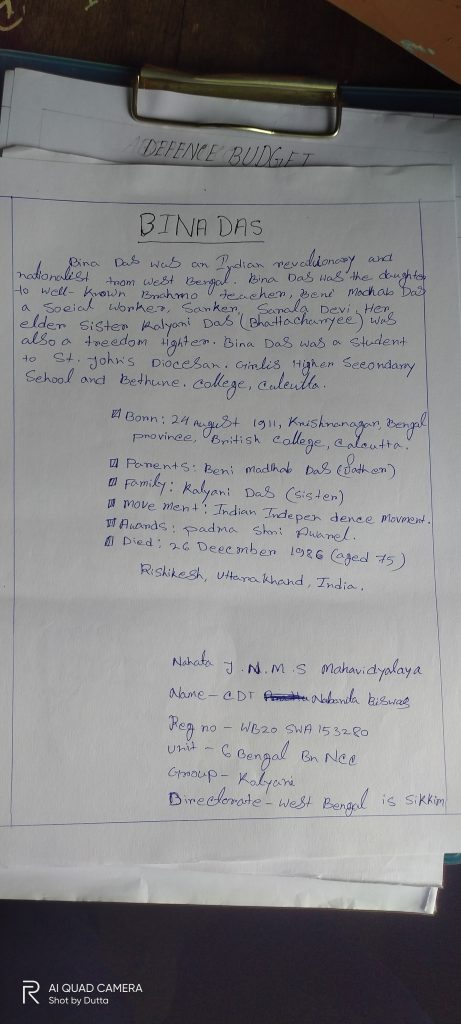 DEFENCE BUDGET
BINA DAS
Bina Das was an Indian revolutionary and
nationalist from West Bengal. Bina Das was the daughter
to well-known Brahmo teacher, Beni Madhab Das
a Social worker, Sarker, Sarala Devi. Her
elder Sister Kalyani Das (Bhattacharyee) was
also a freedom fighter. Bina Das was a Student
to St. John's Diocesan. Girls Higher Secondary
School and Bethune. College, Calcutta.
Born: 24 August 1911, Krushnanagar, Bengal
province, British College, Calcutta.
Parents: Beni madhab Das (father)
Family: Kalyani Das (sister)
Move ment: Indian Indepen dence Movment.
Awards: padma Shri Award.
Died: 26 December 1986 (aged 75)
Rishikesh, Uttarakhand, India.
Nahata J.N.M.S Mahavidyalaya
Name - CDT Nabanita Biswas
Reg no - WB20 SWA 153280
unit - 6 Bengal Bn NCC
Group - Kalyani
Directorate - West Bengal is Sikkim
AI QUAD CAMERA
Shot by Dutta